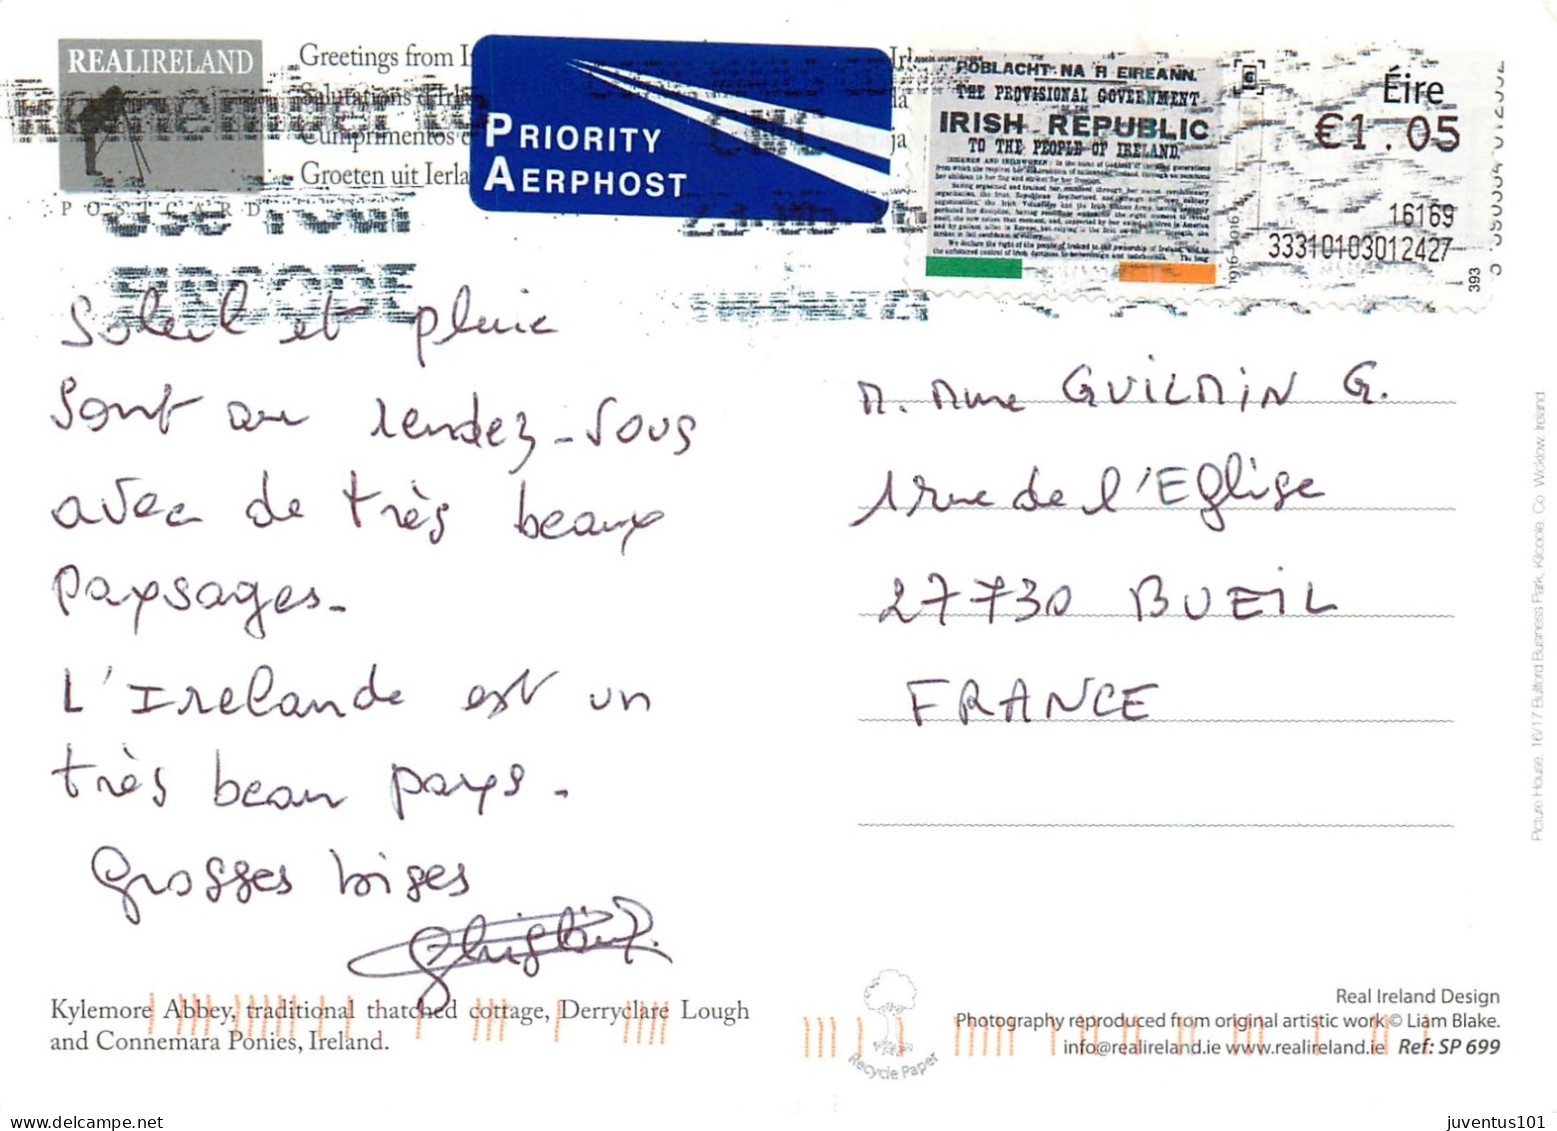 REALIRELAND
POSTCARD
Greetings from
Salutations d'Irla
Cumprimentos
Groeten uit Ierla
Remember to
Use Your
EIRCODE
PRIORITY
AERPHOST
CMC
POBLACHT NA H EIREANN.
THE PROVISIONAL GOVERNMENT
IRISH REPUBLIC
TO THE PEOPLE OF IRELAND.
1916-2016
Éire
€1.05
16169
33310103012427
393
Soleil et pluie
sont au rendez-vous
avec de très beaux
paysages.
L'Irelande est un
très beau pays.
Grosses bises
M. Mme GUILMIN G.
1 rue de l'Eglise
27730 BUEIL
FRANCE
Kylemore Abbey, traditional thatched cottage, Derryclare Lough
and Connemara Ponies, Ireland.
Recycle Paper
Real Ireland Design
Photography reproduced from original artistic work © Liam Blake.
info@realireland.ie www.realireland.ie Ref: SP 699
Picture House, 16/17 Bullford Business Park, Kilcoole, Co. Wicklow, Ireland
www.delcampe.net
juventus101